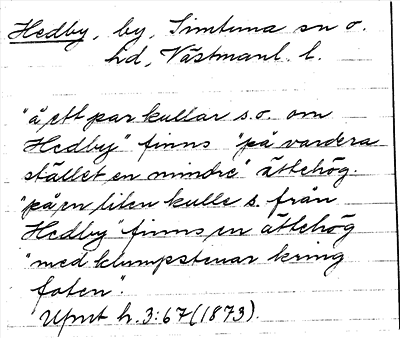 Hedby, by, Simtuna sn o.
hd, Västmanl. l.
"å ett par kullar s.o. om
Hedby" finns "på vardera
stället en mindre" ättehög.
"på en liten kulle s. från
Hedby" finns en ättehög
"med klumpstenar kring
foten".
Upmt h. 3:67 (1873).